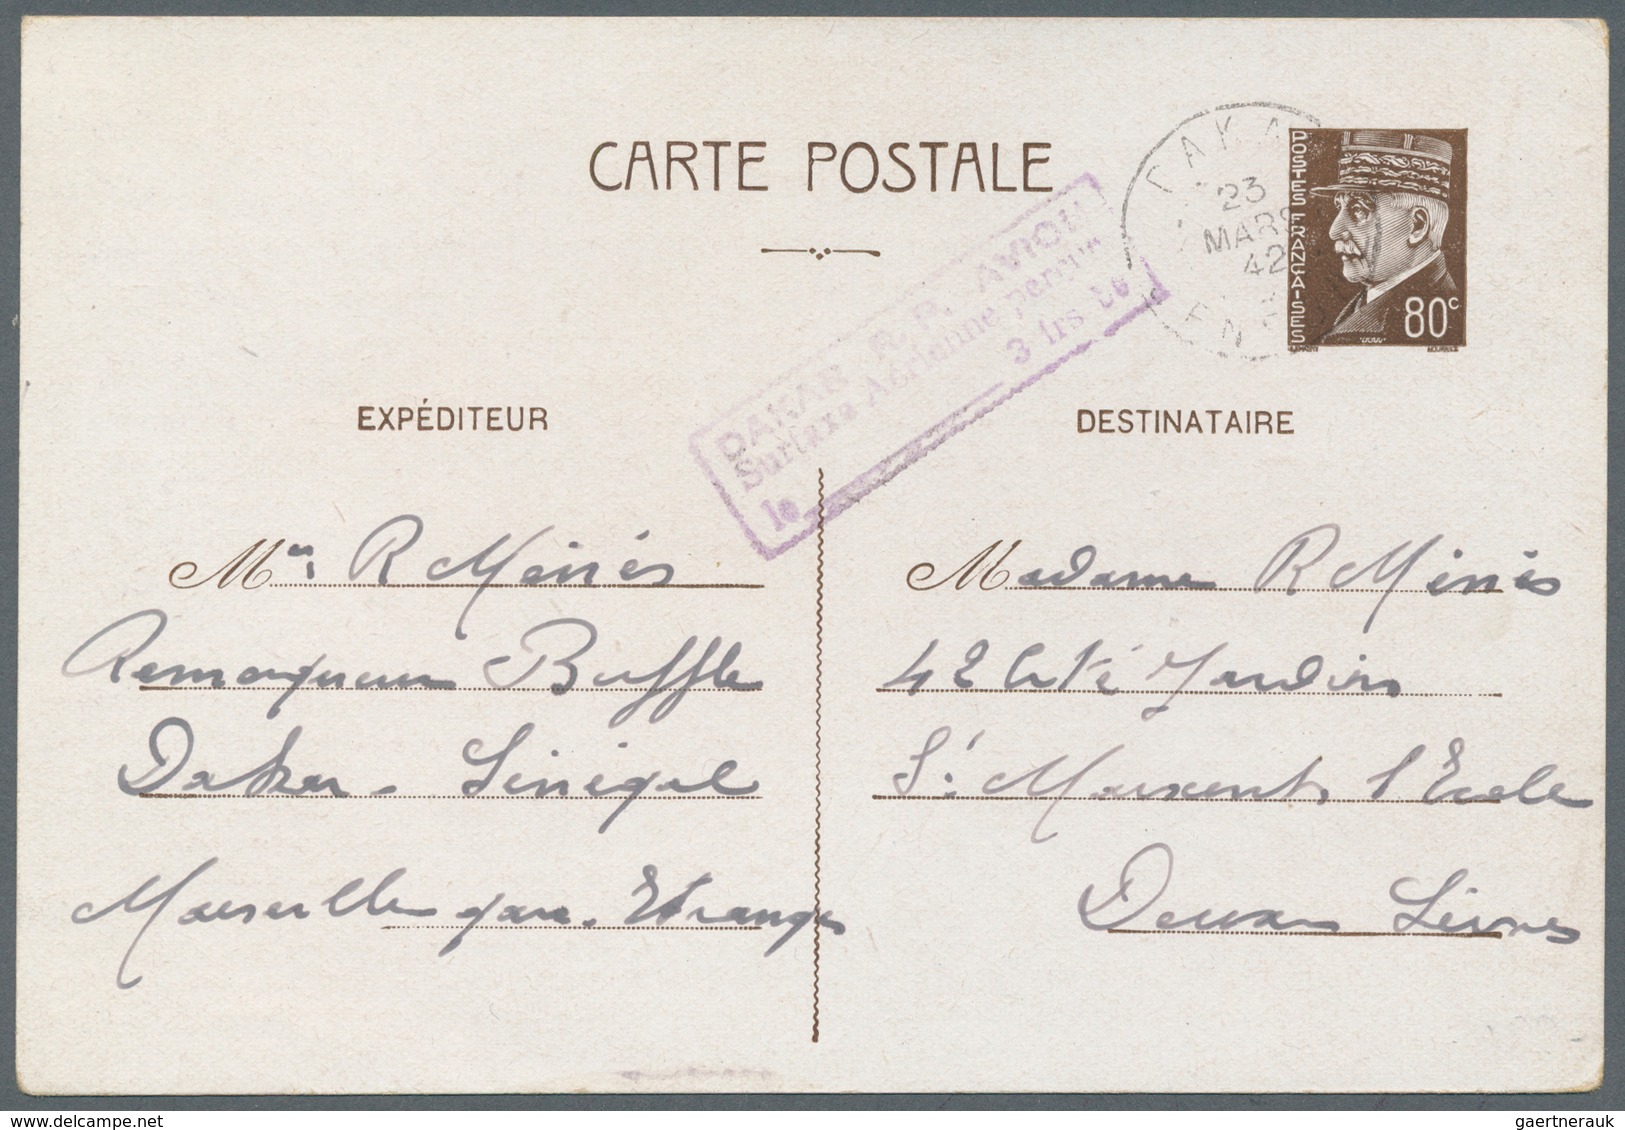 CARTE POSTALE
DAKAR
23
MARS
42
POSTES FRANÇAISES
80c
DAKAR R.P. AVION
Surtaxe Aérienne perçue
3 frs
le
EXPÉDITEUR
DESTINATAIRE
Mr R Ménès
Remorqueur Buffle
Dakar - Sénégal
Marseille gare. Etranger
Madame R Ménès
42 Cité Jardin
St. Maixent l'Ecole
Deux Sèvres
gaertnerauk